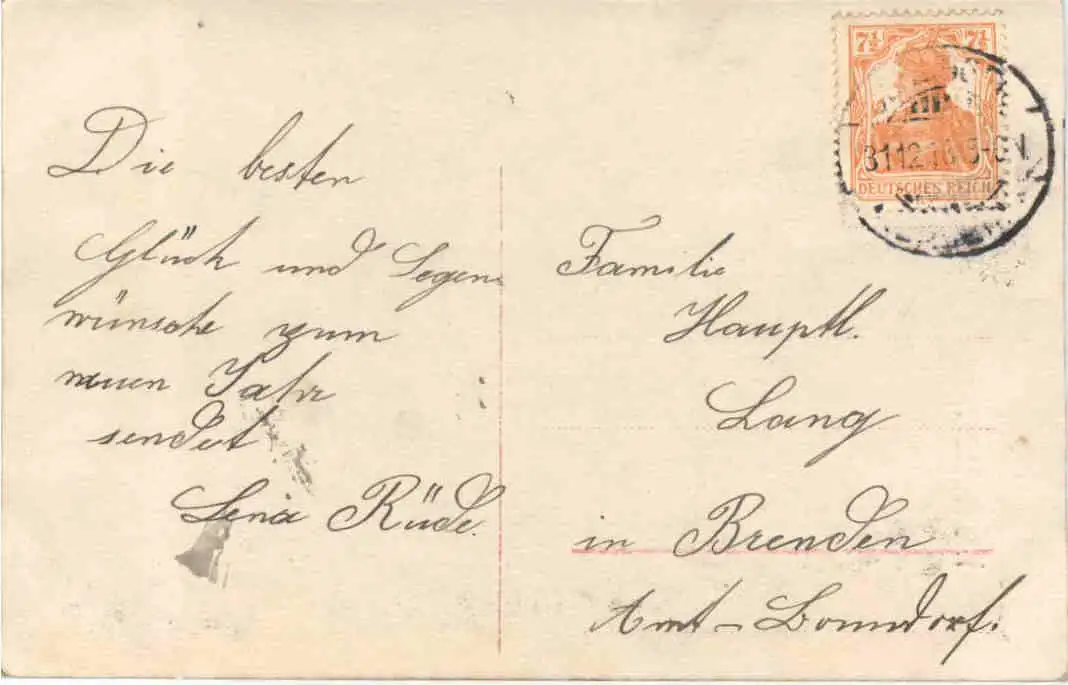 Die besten
Glück und Segens
wünsche zum
neuen Jahr
sendet
Lena Rüde.
7½ 7½
DEUTSCHES REICH
31.12.16.
Familie
Hauptl.
Lang
in Brenden
Amt-Bonndorf.